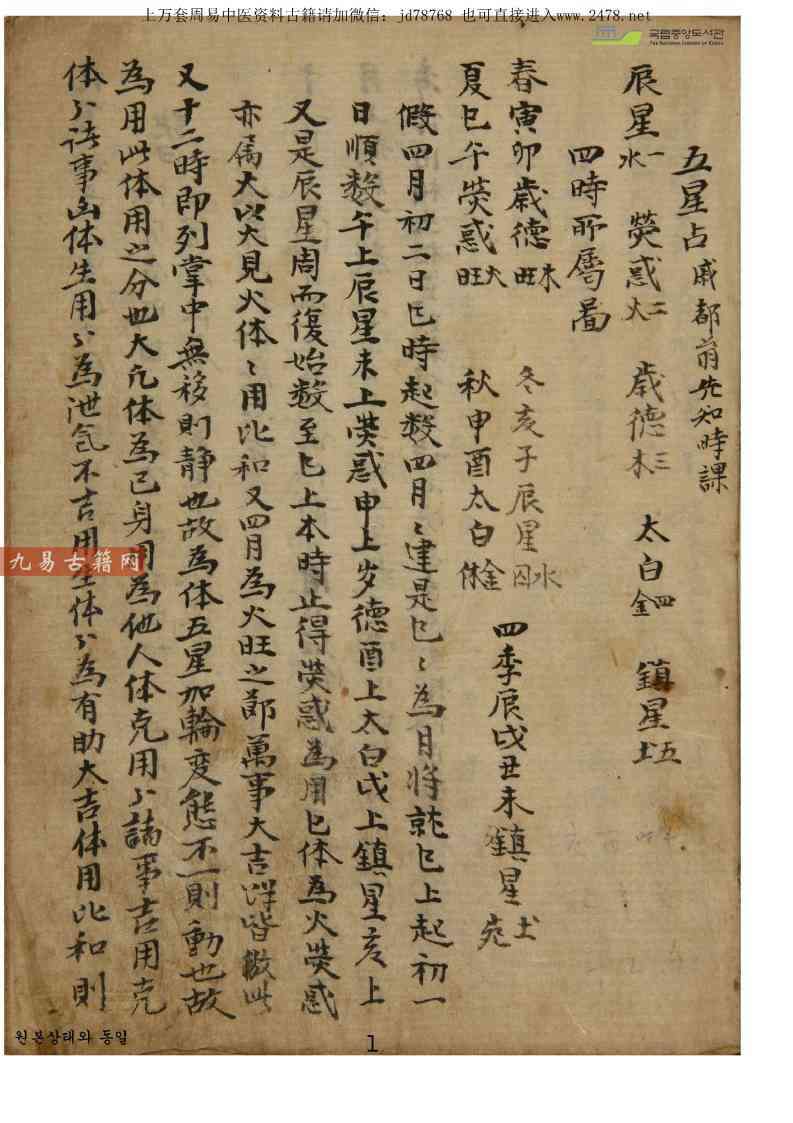 上万套周易中医资料古籍请加微信：jd78768 也可直接进入www.2478.net
국립중앙도서관
THE NATIONAL LIBRARY OF KOREA
五星占 戚都前先知時課
辰星一水 熒惑二火 歳德三木 太白四金 鎮星五土
四時所屬啚
春寅卯歳德木旺 冬亥子辰星水囚
夏巳午熒惑火旺 秋申酉太白金休 四季辰戌丑未鎮星土
假四月初二日巳時起数四月〻建是巳〻為月將就巳上起初一
日順数午上辰星未上熒惑申上岁德酉上太白戌上鎮星亥上
又是辰星周而復始数至巳上本時止得熒惑為用巳体為火熒惑
亦属火以火見火体〻用比和又四月為火旺之節萬事大吉皆倣此
又十二時即列掌中無移則静也故為体五星加輪変態不一則動也故
為用此体用之分也大凡体為己身用為他人体克用〻諸事吉用克
体〻诸事凶体生用〻為泄気不吉用生体〻為有助大吉体用比和則
九易古籍网
원본상태와 동일
1